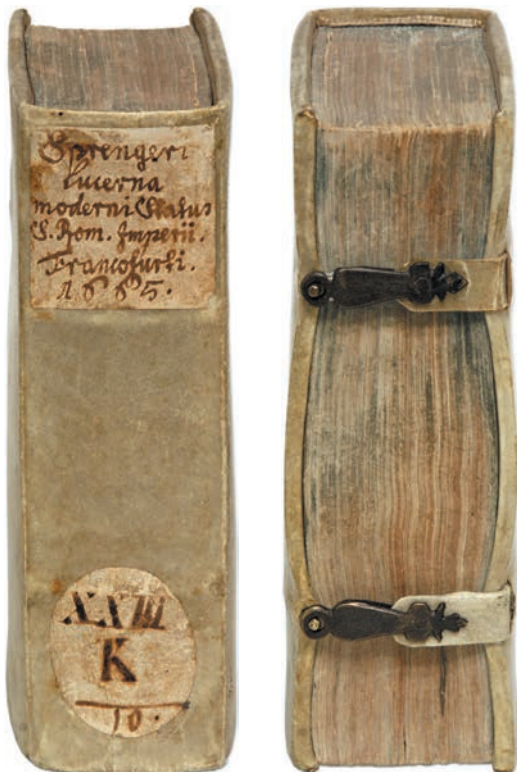 Sprengeri
lucerna
moderni Status
S. Rom. Imperii.
Francofurti.
1665.
XXIII
K
10.